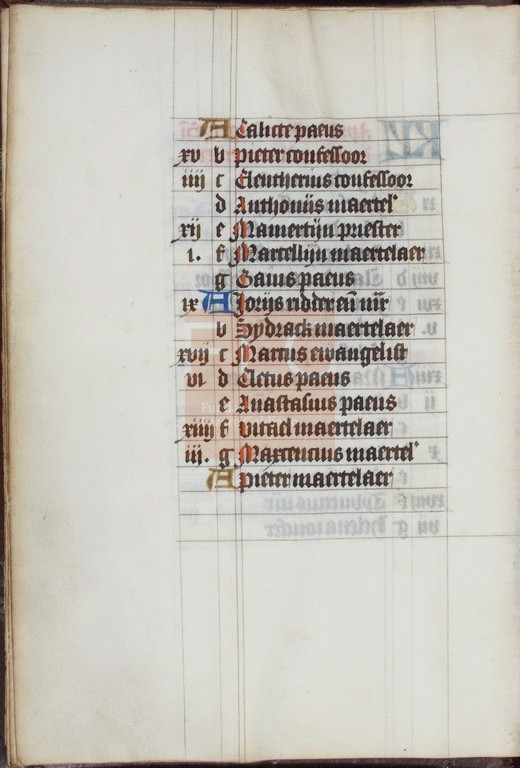 A Calixte paeus
xv b pieter confessoor
iiij c Eleutherius confessoor
d Anthoniis maertel'
xij e Mamertijn priester
i. f Marcellijn maertelaer
g Gaius paeus
ix A Jorijs ridder eñ mr̄
b Sydrach maertelaer
xvij c Marcus ewangelist
vi d Cletus paeus
e Anastasius paeus
xiiij f vitael maertelaer
iij. g Maxencius maertel'
A pieter maertelaer